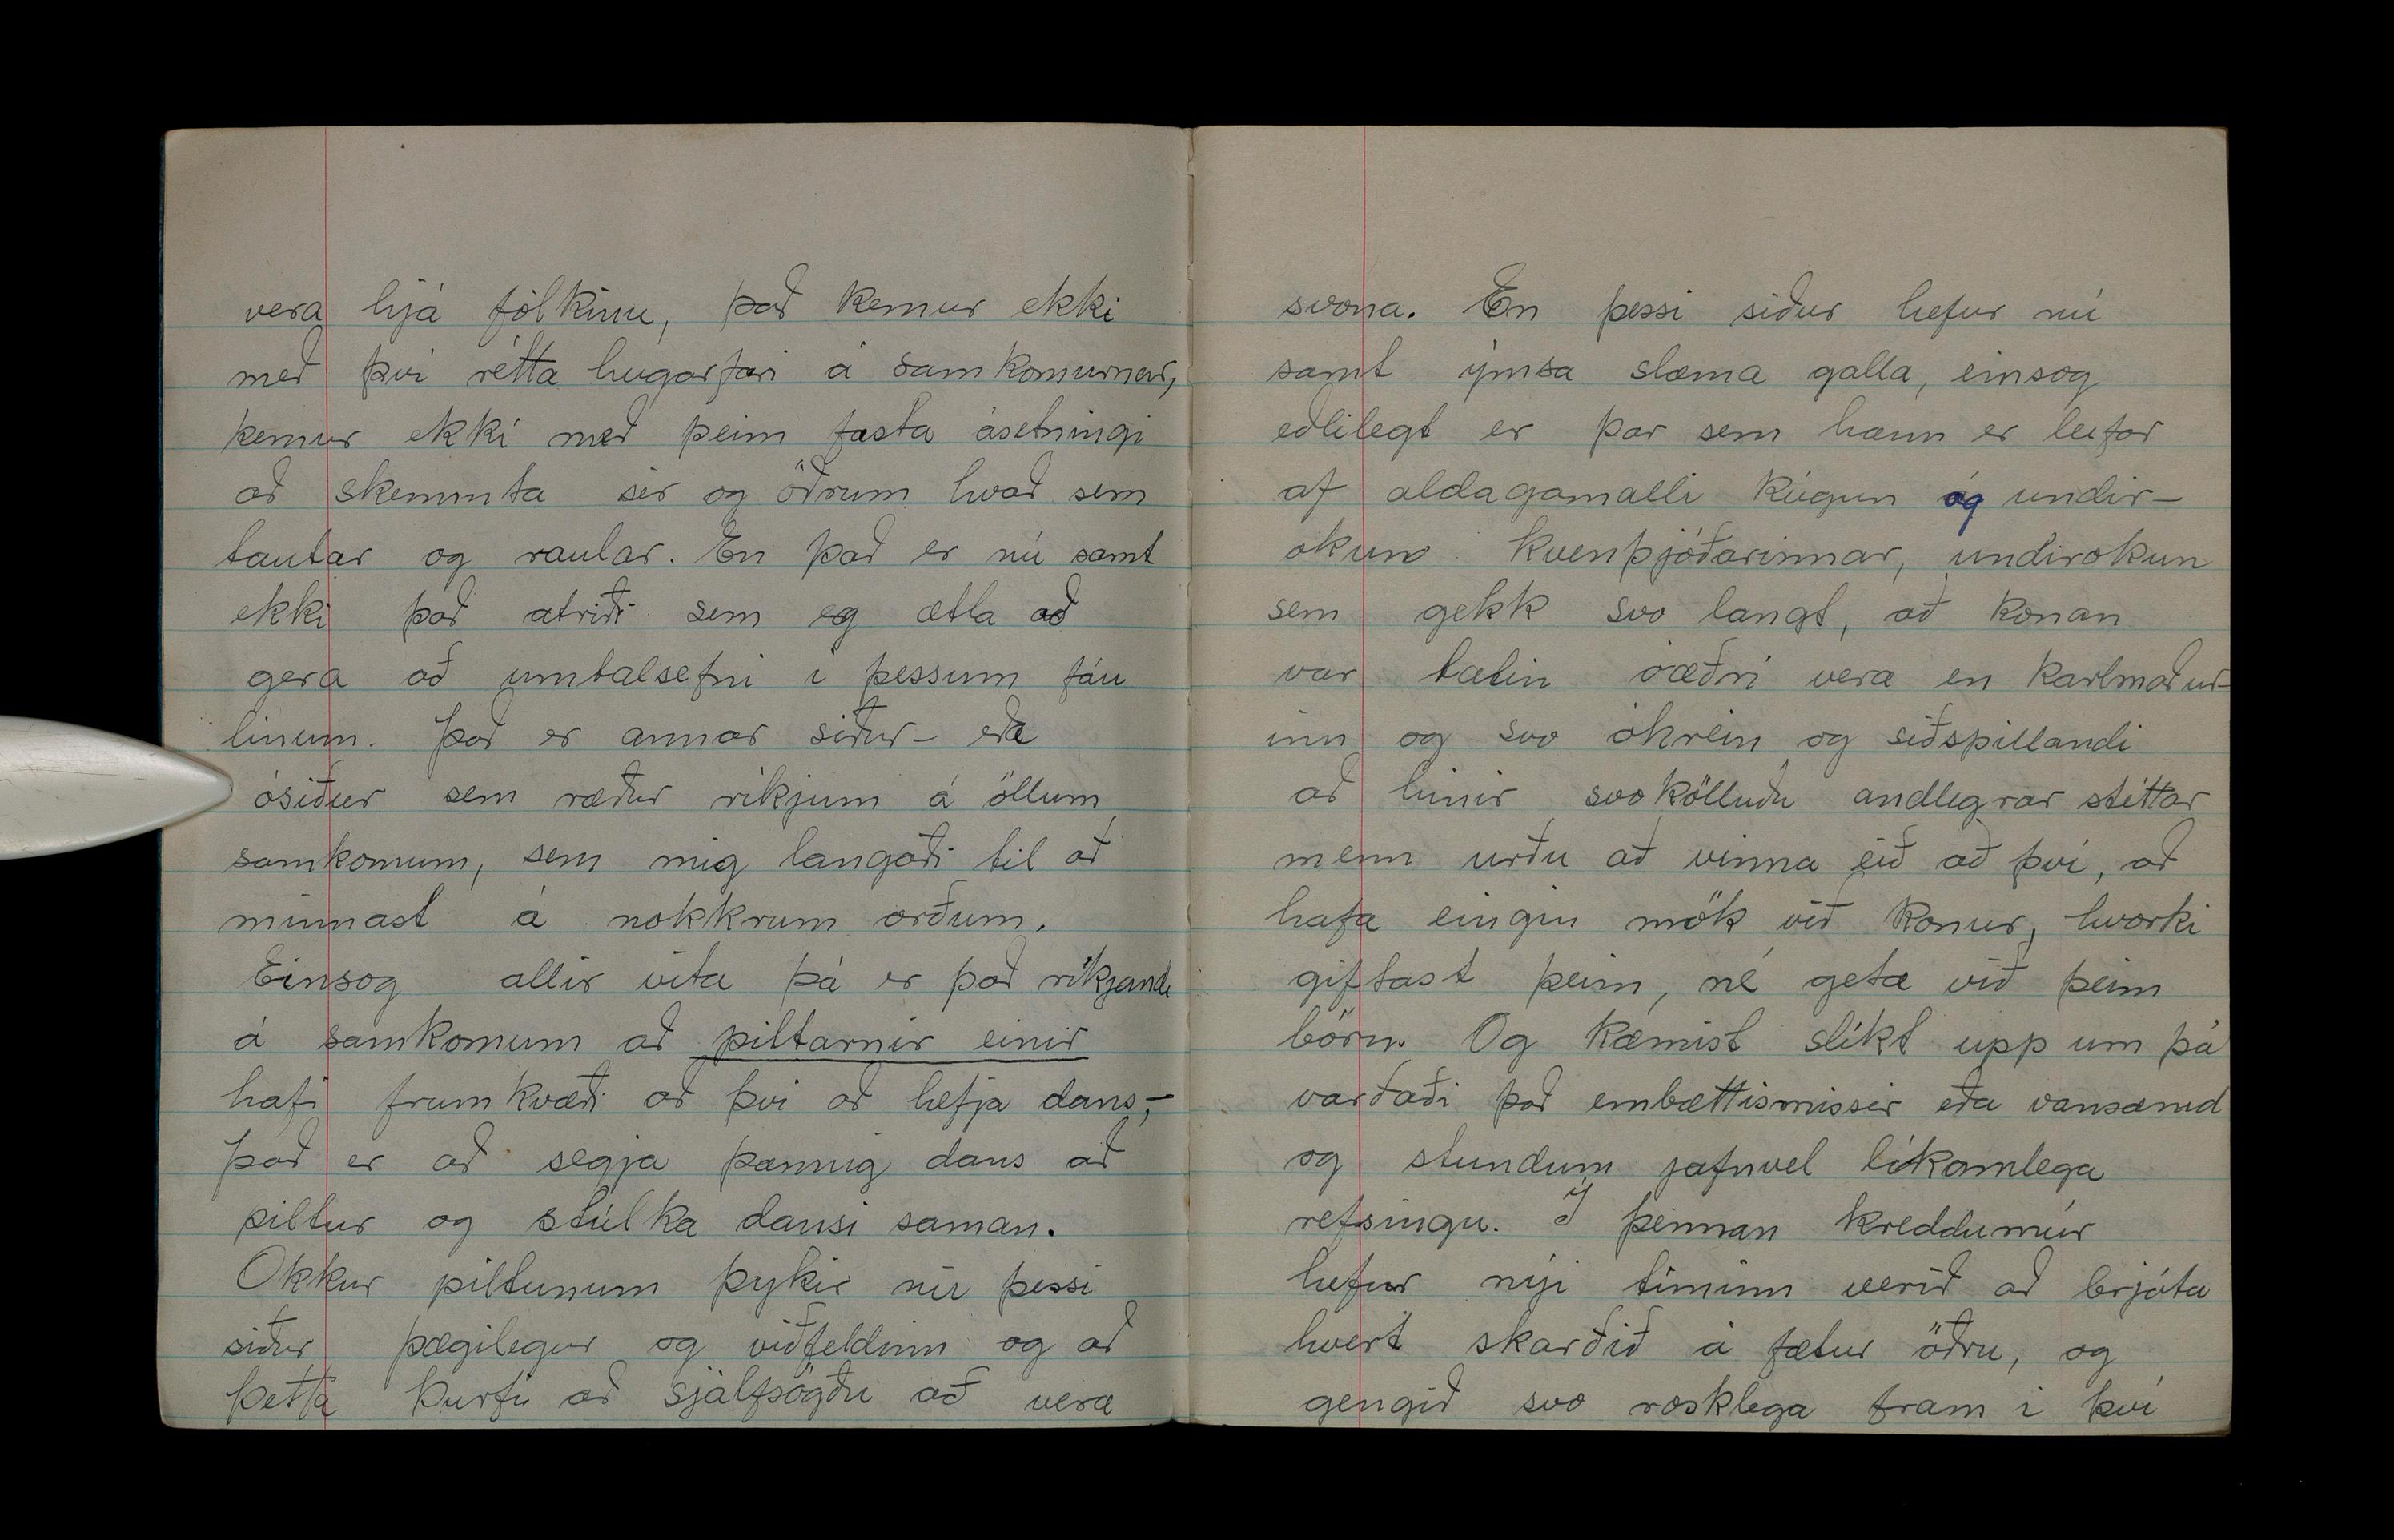 vera hjá fólkinu, það kemur ekki
með því rétta hugarfari á samkomurnar,
kemur ekki með þeim fasta ásetningi
að skemmta sér og öðrum hvað sem
tautar og raular. En það er nú samt
ekki það atriði sem eg ætla að
gera að umtalsefni i þessum fáu
línum. Það er annar siður- eða
ósiður sem ræður ríkjum á öllum
samkomum, sem mig langaði til að
minnast á nokkrum orðum.
Einsog allir vita þá er það ríkjandi
á samkomum að piltarnir einir
hafi frumkvæði að því að hefja dans,-
það er að segja þannig dans að
piltur og stúlka dansi saman.
Okkur piltunum þykir nú þessi
siður þægilegur og viðfeldinn og að
þetta þurfi að sjálfsögðu að vera
svona. En þessi siður hefur nú
samt ýmsa slæma galla, einsog
eðlilegt er þar sem hann er leifar
af aldagamalli kúgun og undir-
okun kvenþjóðarinnar, undirokun
sem gekk svo langt, að konan
var talin óæðri vera en karlmaður-
inn og svo óhrein og siðspillandi
að hinir svokölluðu andlegrar stéttar
menn urðu að vinna eið að því, að
hafa eingin mök við konur, hvorki
giftast þeim, né geta við þeim
börn. Og kæmist slíkt upp um þá
varðaði það embættismissir eða vansæmd
og stundum jafnvel líkamlega
refsingu. Í þennan kreddumúr
hefur nýi tíminn verið að brjóta
hvert skarðið á fætur öðru, og
gengið svo rösklega fram í því